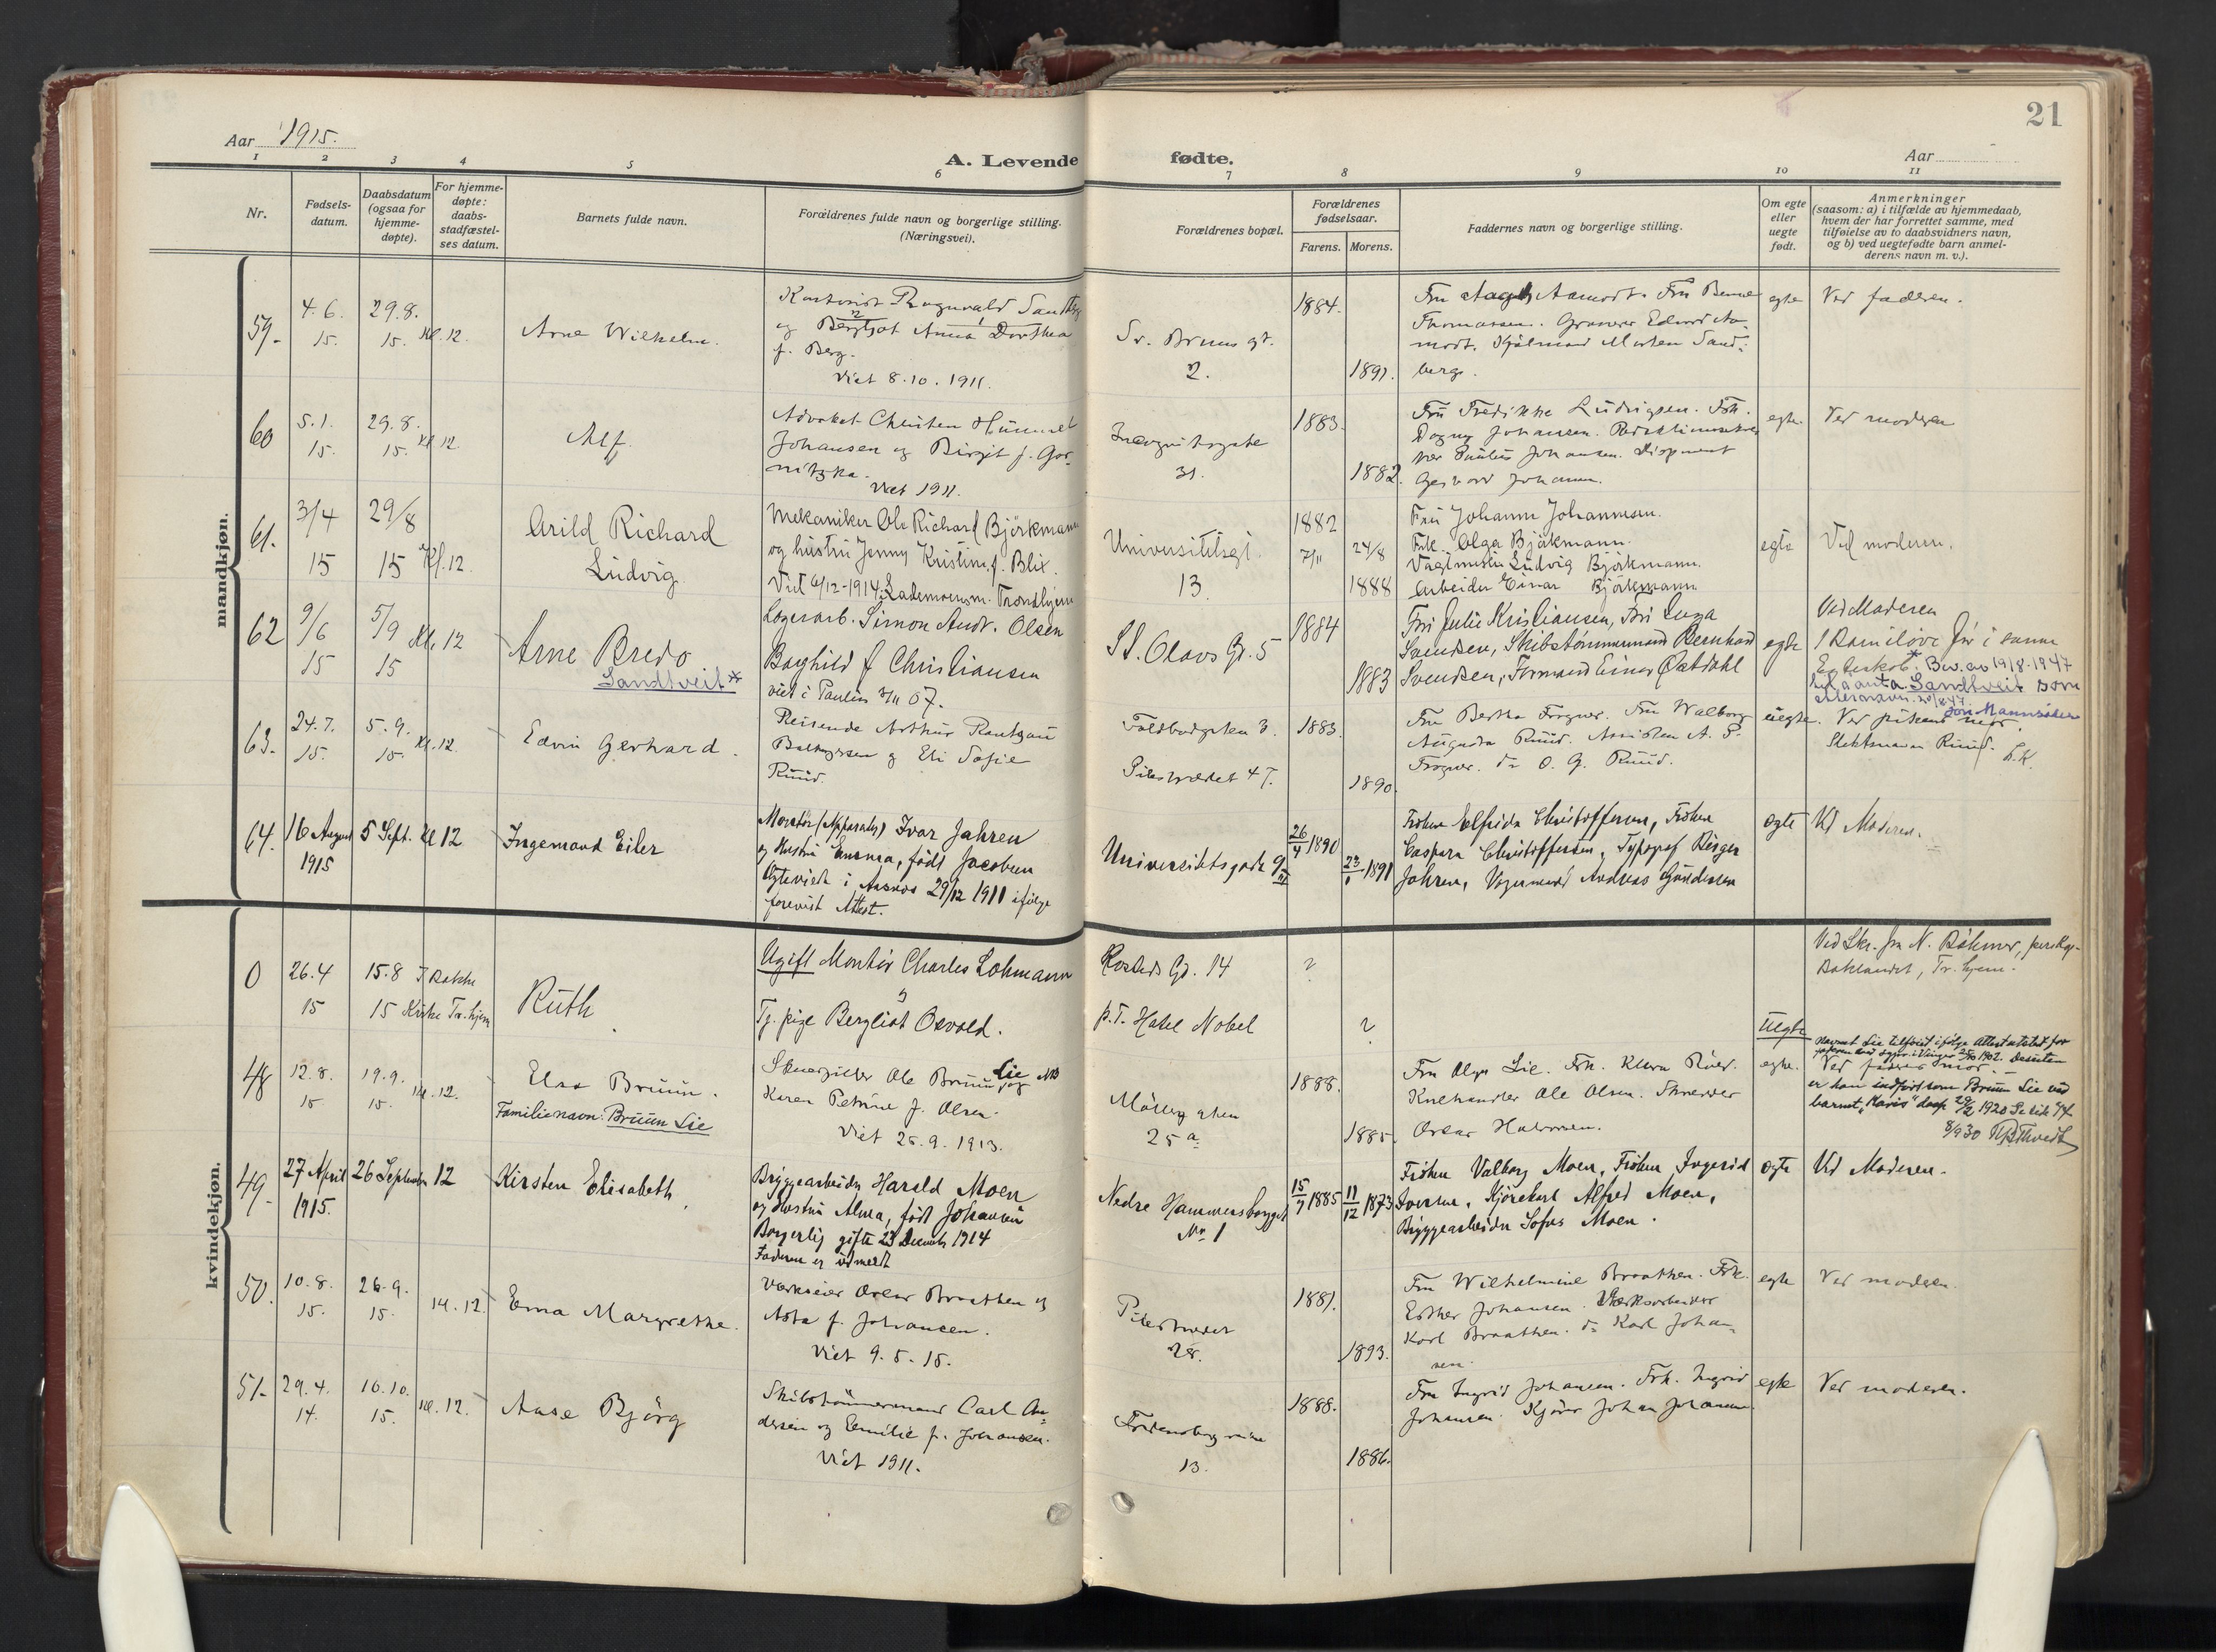 21
Aar 1915.
A. Levende fødte.
Aar
1 2 3 4 5 6 7 8 9 10 11
Nr.
Fødsels-
datum.
Daabsdatum
(ogsaa for
hjemme-
døpte).
For hjemme-
døpte:
daabs-
stadfæstel-
ses datum.
Barnets fulde navn.
Forældrenes fulde navn og borgerlige stilling.
(Næringsvei).
Forældrenes bopæl.
Forældrenes
fødselsaar.
Farens. Morens.
Faddernes navn og borgerlige stilling.
Om egte
eller
uegte
født.
Anmerkninger
(saasom: a) i tilfælde av hjemmedaab,
hvem der har forrettet samme, med
tilføielse av to daabsvidners navn,
og b) ved uegtefødte barn anmel-
derens navn m. v.).
mandkjøn.
59.
4.6.
15.
29.8.
15. Kl. 12.
Arne Wilhelm.
og Bergljot Anna Dorthea
f. Berg.
Viet 8.10.1911.
2.
1884.
1891.
egte
Ved faderen.
60
5.1.
15.
29.8.
15. Kl 12.
Alf.
Advokat Christen Hummel
Johansen og Birgit f. Gor-
nitzka.
Viet 1911.
31.
1883.
1882.
Fru Fredikke Ludvigsen. Frk.
Dagny Johansen.
egte.
Ved moderen
61.
3/4
15
29/8
15 Kl. 12.
Arild Richard
Ludvig
Mekaniker Ole Richard Björkmann
og hustru Jenny Kristine f. Blix.
Viet 6/12-1914. Lademoens m. Trondhjem
Universitetsgt.
13.
1882
7/11
24/8
1888
Fru Johanna Johannesen.
Frk. Olga Björkmann.
Vagtmester Ludvig Björkmann.
Arbeider Einar Björkmann
egte
Ved moderen.
62
9/6
15
5/9
15
Kl. 12
Arne Bredo
Sandtveit*
Lagerarb. Simon Andr. Olsen
Borghild f Christiansen
viet i Paulus 3/11 07.
St. Olavs Gt. 5
1884
1883
Fru Julie Kristiansen, Fru Inga
Svendsen, Skibstømmermand Bernhard
Svendsen, Formand Einar Østdahl
egte
Ved Moderen
1 Barn ilive før i samme
Egteskab. * Bev. av 19/8-1947
til å anta Sandtveit som
63.
24.7.
15.
5.9.
15.
Kl. 12.
Edvin Gerhard.
Reisende Arthur Rantzau
og Eli Sofie
Ruud.
3.
4 I.
1883.
1890.
Fru Bertha Frogner. Fru Walborg
Augusta Ruud. A. P.
Frogner. do O. G. Ruud.
uegte.
Ved pikens mor.
Slektsnavn Ruud.
64.
16 August
1915
5 Sept. Kl 12
Ingemand Eiler
Montør (Apparater) Ivar Jahren
og Hustru Emma, født Jacobsen
Egteviet i Asnæs 29/12 1911 ifølge
forevist Attest.
Universitetsgade 9 III
26/4 1890
23/1 1891
Frøken Elfrida Christoffersen, Frøken
Caspara Christoffersen, Typograf Birger
Jahren, Vognmand Andreas Gundersen
egte
Vd Moderen.
kvindekjøn.
0
26.4
15
15.8
15
Kirke Tr.hjem
Ruth
Ugift Montør Charles Lohmann
og
Tj. pige Bergliot Osvold.
Rosteds Gd. 14
p.t. Hotel Nobel
?
?
uegte
48
12.8.
15
19.9.
15.
Kl. 12.
Else Bruun.
Familienavn: Bruun Lie
Skuespiller Ole Bruun Lie og NB
Karen Petrine f. Olsen.
Viet 25.9.1913.
25 a.
1888.
1885.
Fru Olga Lie. Frk. Klara
Kulhandler Ole Olsen. Skredder
Oscar
egte.
Ved fadrens mor. —
er han indført som Bruun Lie ved
barnet „Karis" daap 29/2 1920 Se side 74
8/9 30
49
27 April
1915.
26 September 12
Kirsten Elisabeth
Bryggearbeider Harald Moen
og Hustru Alma, født Johansen
Borgerlig gifte 23 December 1914
Faderen er utmeldt
Nedre Hammersborggt
No 1
15/7 1885
11/12 1873
Frøken Valborg Moen, Frøken Ingerid
Iversen, Kjørekarl Alfred Moen,
Bryggearbeider Sofus Moen.
egte
Vd Moderen.
50.
10.8.
15.
26.9.
15.
Kl. 12.
Erna Margrethe.
Verkseier Oscar Braathen og
Asta f. Johansen.
Viet 9.5.15.
Pilestrædet
28.
1881.
1893.
Fru Wilhelmine Braathen. Frk.
Esther Johansen. Verksarbeider
Karl Braathen. do Karl Johan-
sen.
egte
Ved moderen.
51.
29.4.
14.
10.10.
15.
Kl. 12.
Aase Bjørg
Skibstømmermand Carl An-
dersen og Emilie f. Johansen.
Viet 1911.
13.
1888.
1886.
Fru Ingrid Johansen. Frk. Ingrid
Johansen. Kjører Johan Johansen
egte
Ved moderen.